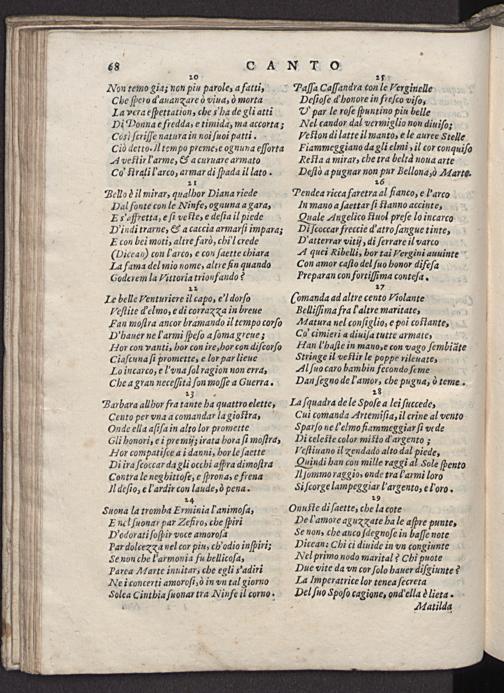 68
CANTO
20
Non temo gia; non piu parole, a fatti,
Che spero d'auanzare ò viua, ò morta
La vera espettation, che s'ha de gli atti
Di Donna e fredda, e timida, ma accorta;
Così scrisse natura in noi suoi patti.
Ciò detto. Il tempo preme, e ognuna essorta
A vestir l'arme, & a curuare armato
Co' strali l'arco, armar di spada il lato.
21
Bello è il mirar, qualhor Diana riede
Dal fonte con le Ninfe, ognuna a gara,
E s'affretta, e si veste, e desia il piede
D'indi trarne, & a caccia armarsi impara;
E con bei moti, altre farò, chi'l crede
(Dicean) con l'arco, e con saette chiara
La fama del mio nome, altre fin quando
Goderem la Vittoria trionfando?
22
Le belle Venturiere il capo, e'l dorso
Vestite d'elmo, e di corrazza in breue
Fan mostra ancor bramando il tempo corso
D'hauer ne l'armi speso a soma greue;
Hor con vanti, hor con ire, hor con discorso
Ciascuna si promette, e lor par lieue
Lo incarco, e l'vna sol ragion non erra,
Che a gran necessità son mosse a Guerra.
23
Barbara allhor fra tante ha quattro elette,
Cento per vna a comandar la giostra,
Onde ella assisa in alto lor promette
Gli honori, e i premij; irata hora si mostra,
Hor compatisce a i danni, hor le saette
Di ira scoccar da gli occhi aspra dimostra
Contra le neghittose, e sprona, e frena
Il desio, e l'ardir con laude, ò pena.
24
Suona la tromba Erminia l'animosa,
E nel suonar par Zefiro, che spiri
D'odorati sospir voce amorosa
Par dolcezza nel cor piu, ch'odio inspiri;
Se non che l'armonia fu bellicosa,
Parea Marte inuitar, che egli s'adiri
Ne i concerti amorosi, ò in vn tal giorno
Solea Cinthia suonar tra Ninfe il corno.
25
Passa Cassandra con le Verginelle
Desiose d'honore in fresco viso,
V' par le rose spuntino piu belle
Nel candor dal vermiglio non diuiso;
Veston di latte il manto, e le auree Stelle
Fiammeggiano da gli elmi, il cor conquiso
Resta a mirar, che tra beltà noua arte
Destò a pugnar non pur Bellona, ò Marte.
26
Pendea ricca faretra al fianco, e l'arco
In mano a saettar si stanno accinte,
Quale Angelico stuol prese lo incarco
Di scoccar freccie d'atro sangue tinte,
D'atterrar vitij, di serrare il varco
A quei Ribelli, hor tai Vergini auuinte
Con amor casto del suo honor difesa
Preparan con fortissima contesa.
27
Comanda ad altre cento Violante
Bellissima fra l'altre maritate,
Matura nel consiglio, e poi costante,
Co' cimieri a diuisa tutte armate,
Han l'haste in mano, e con vago sembiãte
Stringe il vestir le poppe rileuate,
Al suo caro bambin fecondo seme
Dan segno de l'amor, che pugna, ò teme.
28
La squadra de le Spose a lei succede,
Cui comanda Artemisia, il crine al vento
Sparso ne l'elmo fiammeggiar si vede
Di celeste color misto d'argento;
Vestiuano il zendado alto dal piede,
Quindi han con mille raggi al Sole spento
Il sommo raggio, onde tra l'armi loro
Si scorge lampeggiar l'argento, e l'oro.
29
Onuste di saette, che la cote
De l'amore aguzzate ha le aspre punte,
Se non, che anco sdegnose in basse note
Dicean: Chi ci diuide in vn congiunte
Nel primo nodo marital? Chi puote
Due vite da vn cor solo hauer disgiunte?
La Imperatrice lor tenea secreta
Del suo Sposo cagione, ond'ella è lieta.
Matilda